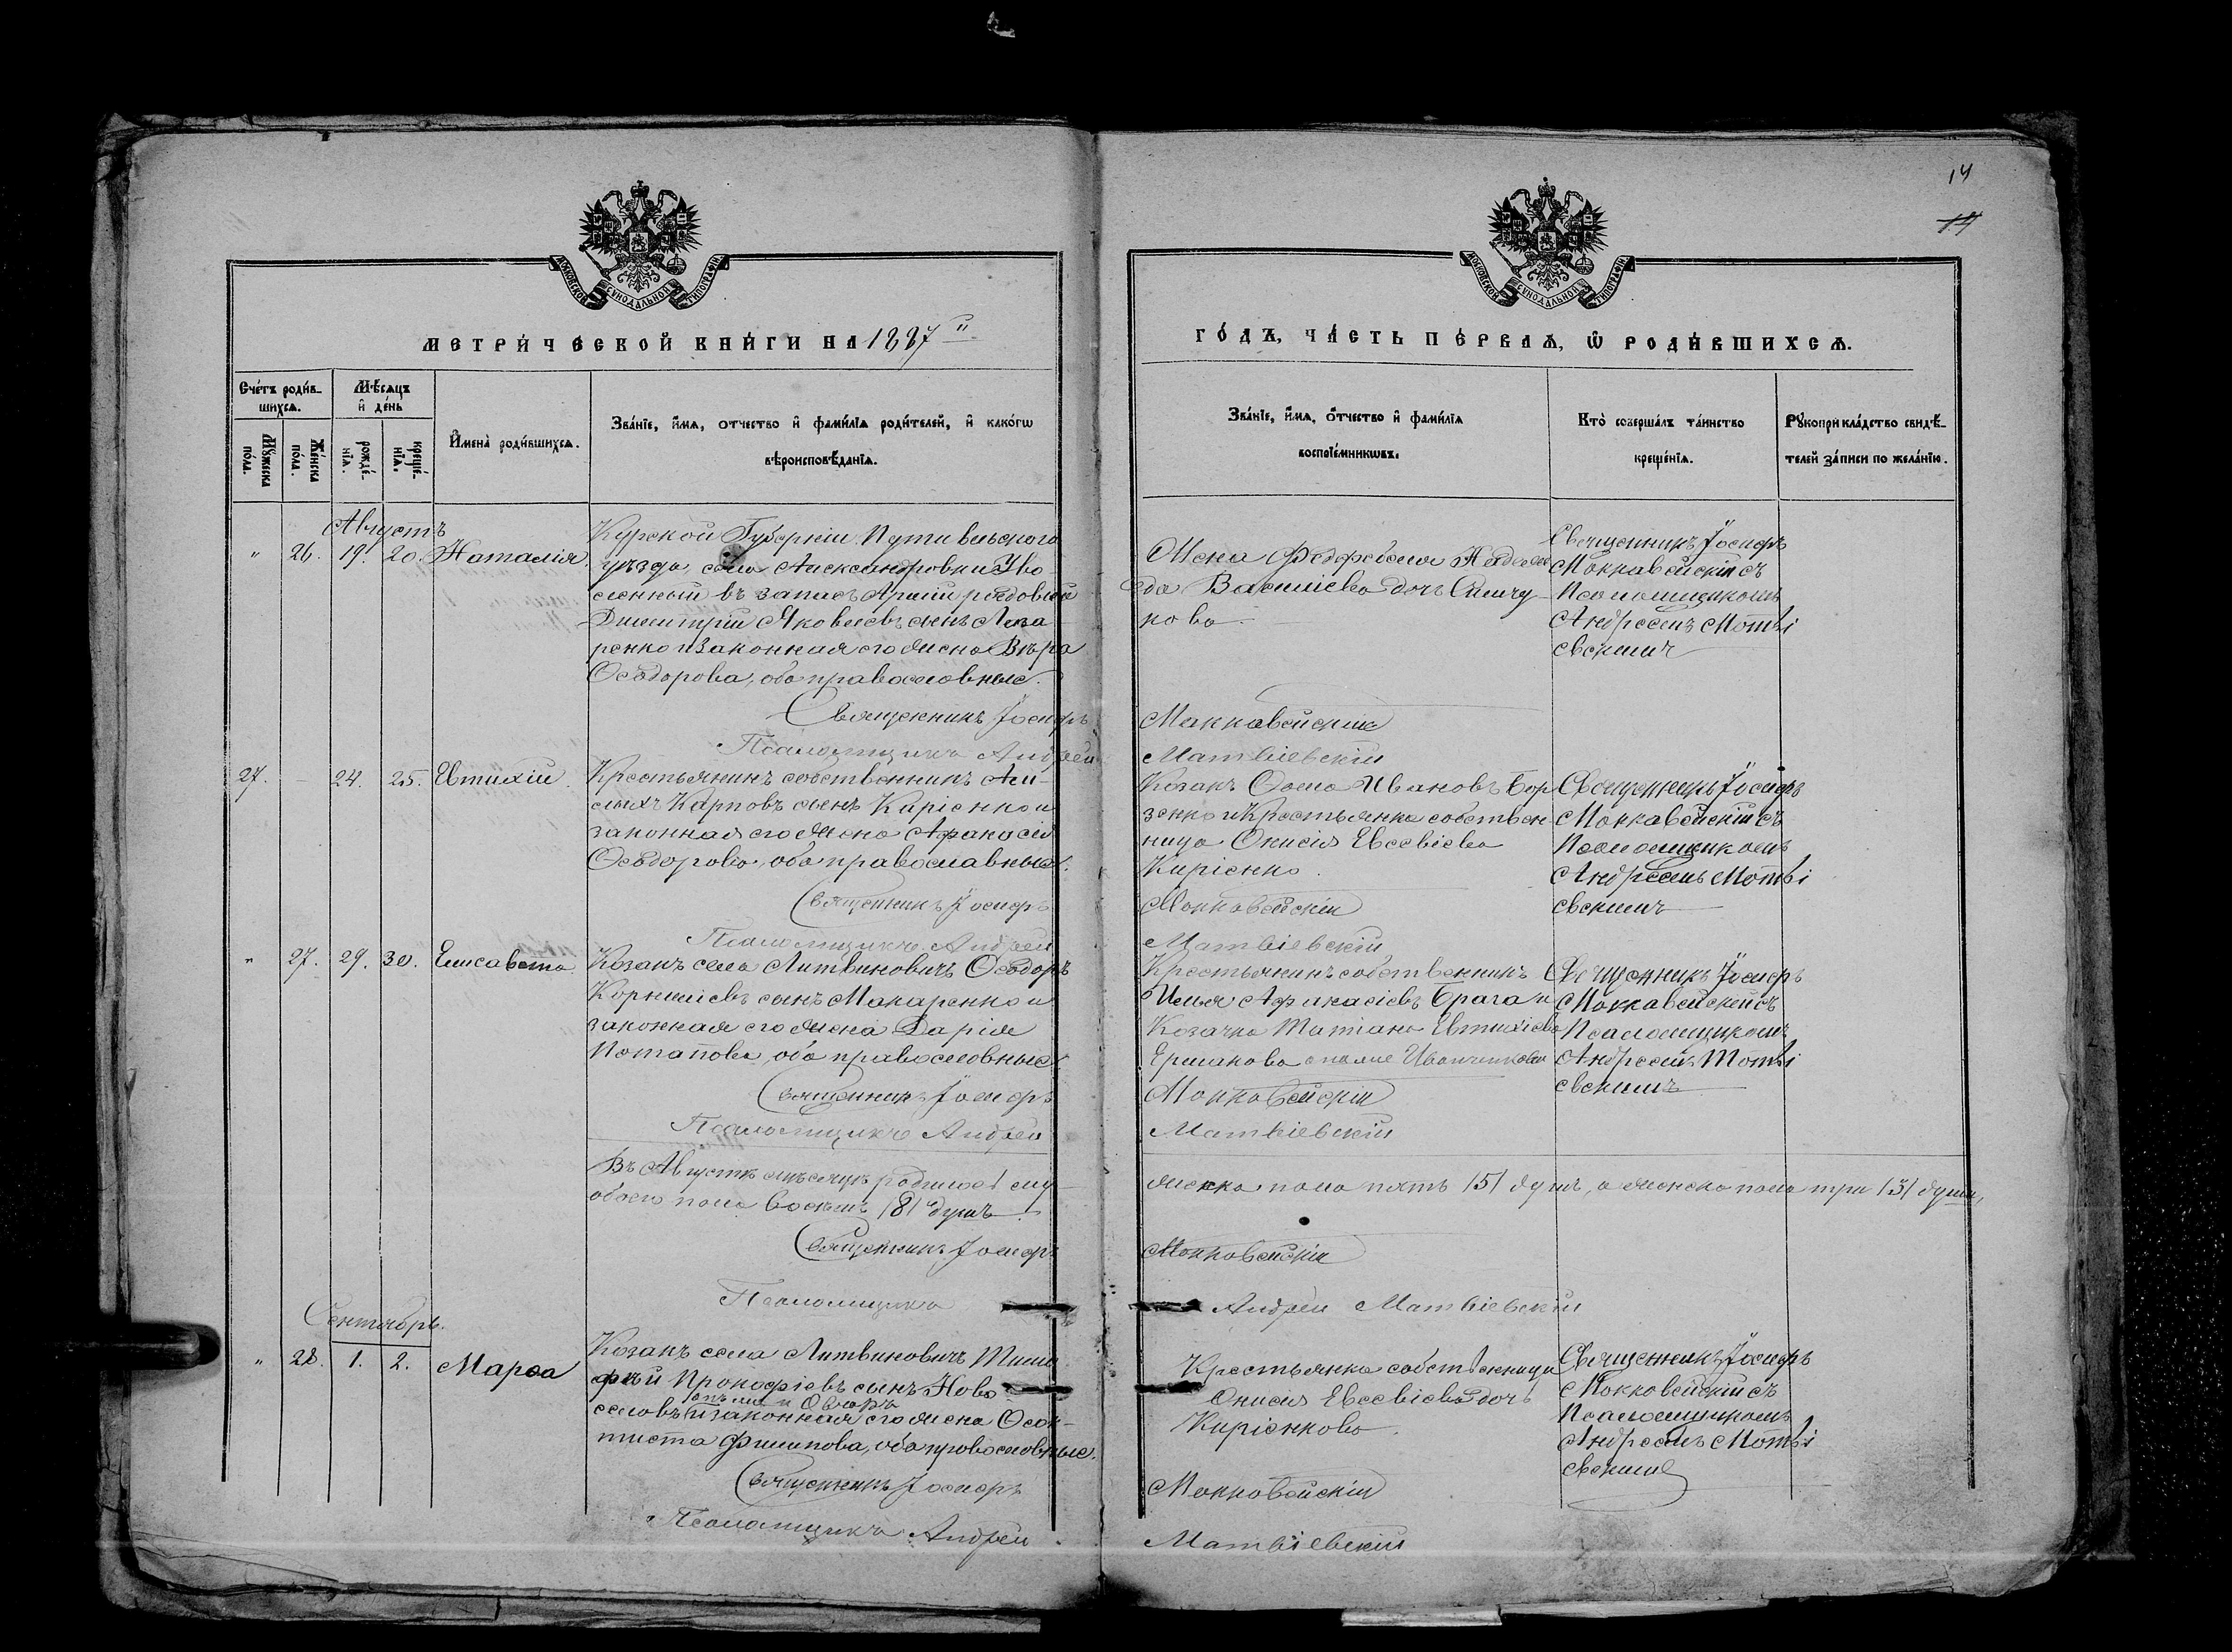 14
14
МОСКОВСКОЙ СѴНОДАЛЬНОЙ ТИПОГРАФІИ
МОСКОВСКОЙ СѴНОДАЛЬНОЙ ТИПОГРАФІИ
МЕТРИ́ЧЕСКОЙ КНИ́ГИ НА 1887й
ГО́ДЪ, ЧА́СТЬ ПЕ́РВАѦ, Ѡ РОДИ́ВШИХСѦ.
Сче́тъ роди́в-
шихсѧ.
Мꙋжеска по́ла.
Же́нска по́ла.
Мѣ́сѧцъ
и҆ де́нь
рожде́-
нїѧ.
креще́-
нїѧ.
И҆мена̀ роди́вшихсѧ.
Зва́нїе, и҆́мѧ, о҆́тчество и҆ фами́лїѧ роди́телей, и҆ како́гѡ
вѣроисповѣ́данїѧ.
Зва́нїе, и҆́мѧ, о҆́тчество и҆ фами́лїѧ
воспрїе́мникѡвъ.
Кто̀ соверша́лъ та́инство
креще́нїѧ.
Рꙋкоприкла́дство свидѣ́-
телей за́писи по жела́нїю.
Августъ
" 26. 19. 20. Наталія.
Курской Губерніи Путивльскаго
уѣзда, села Александровки Уво
ленный въ запасъ Арміи рядовый
Димитрій Яковлевъ сынъ Лаза
ренко и законная его жена Вѣра
Ѳеодорова, оба православные.
Священникъ Іосифъ
Псаломщикъ Андрей
Жена Фельдфебеля
Василіева дочь
кова
Маккавейскій
Матвіевскій
Священникъ Іосифъ
Маккавейскій съ
Псаломщикомъ
Андреемъ Матві
евскимъ
27. - 24. 25. Евтихій.
Крестьянинъ собственникъ
Карповъ сынъ Кирієнко и
законная его жена Афанасія
Ѳеодорова, оба православные.
Священникъ Іосифъ
Псаломщикъ Андрей
Козакъ Ѳома Ивановъ Бор
зенко и Крестьянка собствен
ница Онисія Евсевіева
Кирієнко.
Маккавейскій
Матвіевскій
Священникъ Іосифъ
Маккавейскій съ
Псаломщикомъ
Андреемъ Матві
евскимъ
" 27. 29. 30. Елисавета
Козакъ села Литвиновичъ Ѳеодоръ
Корниліевъ сынъ Макаренко и
законная его жена Дарія
Потапова, оба православные.
Священникъ Іосифъ
Псаломщикъ Андрей
Крестьянинъ собственникъ
Илья Афанасіевъ Брага и
Козачка Татіана Евтихіева
Ермакова
Маккавейскій
Матвіевскій
Священникъ Іосифъ
Маккавейскій съ
Псаломщикомъ
Андреемъ Матві
евскимъ
Въ Августѣ мѣсяцѣ родилось му
жеска пола пять /5/ душъ, а женска пола три /3/ души,
обоего пола восемь /8/ душъ.
Священникъ Іосифъ
Маккавейскій
Псаломщикъ
Андрей Матвіевскій
Сентябрь.
" 28. 1. 2. Марѳа
Козакъ села Литвиновичъ Тимо
фей Прокофіевъ сынъ Ново
селовъ и законная его жена Ѳеок-
тиста Филипова, оба православные.
Священникъ Іосифъ
Псаломщикъ Андрей
Крестьянка собственница
Онисія Евсевіева дочь
Кирієнкова.
Маккавейскій
Матвіевскій
Священникъ Іосифъ
Маккавейскій съ
Псаломщикомъ
Андреемъ Матві
евскимъ